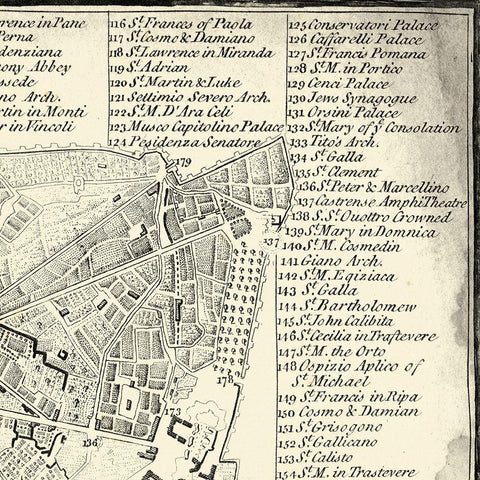 rence in Pane
Perna
denziana
ony Abbey
ssede
no Arch.
rtin in Monti
r in Vincoli
116 S.t Frances of Paola
117 S.t Cosmo & Damiano
118 S.t Lawrence in Miranda
119 S.t Adrian
120 S.t Martin & Luke
121 Settimio Severo Arch.
122 S.t M. D'Ara Celi
123 Museo Capitolino Palace
124 Pesidenza Senatore
125 Conservatori Palace
126 Caffarelli Palace
127 S.t Francis Pomana
128 S.t M. in Portico
129 Cenci Palace
130 Jews Synagogue
131 Orsini Palace
132 S.t Mary of y.e Consolation
133 Tito's Arch.
134 S.t Galla
135 S.t Clement
136 S.t Peter & Marcellino
137 Castrense AmphiTheatre
138 S. S.t Quottro Crowned
139 S.t Mary in Domnica
140 S.t M. Cosmedin
141 Giano Arch.
142 S.t M. Egiziaca
143 S.t Galla
144 S.t Bartholomew
145 S.t John Calibita
146 S.t Cecilia in Trastevere
147 S.t M. the Orto
148 Ospizio Aplico of
S.t Michael
149 S.t Francis in Ripa
150 Cosmo & Damian
151 S.t Grisogono
152 S.t Gallicano
153 S.t Calisto
154 S.t M. in Trastevere
179
137
178
173
136